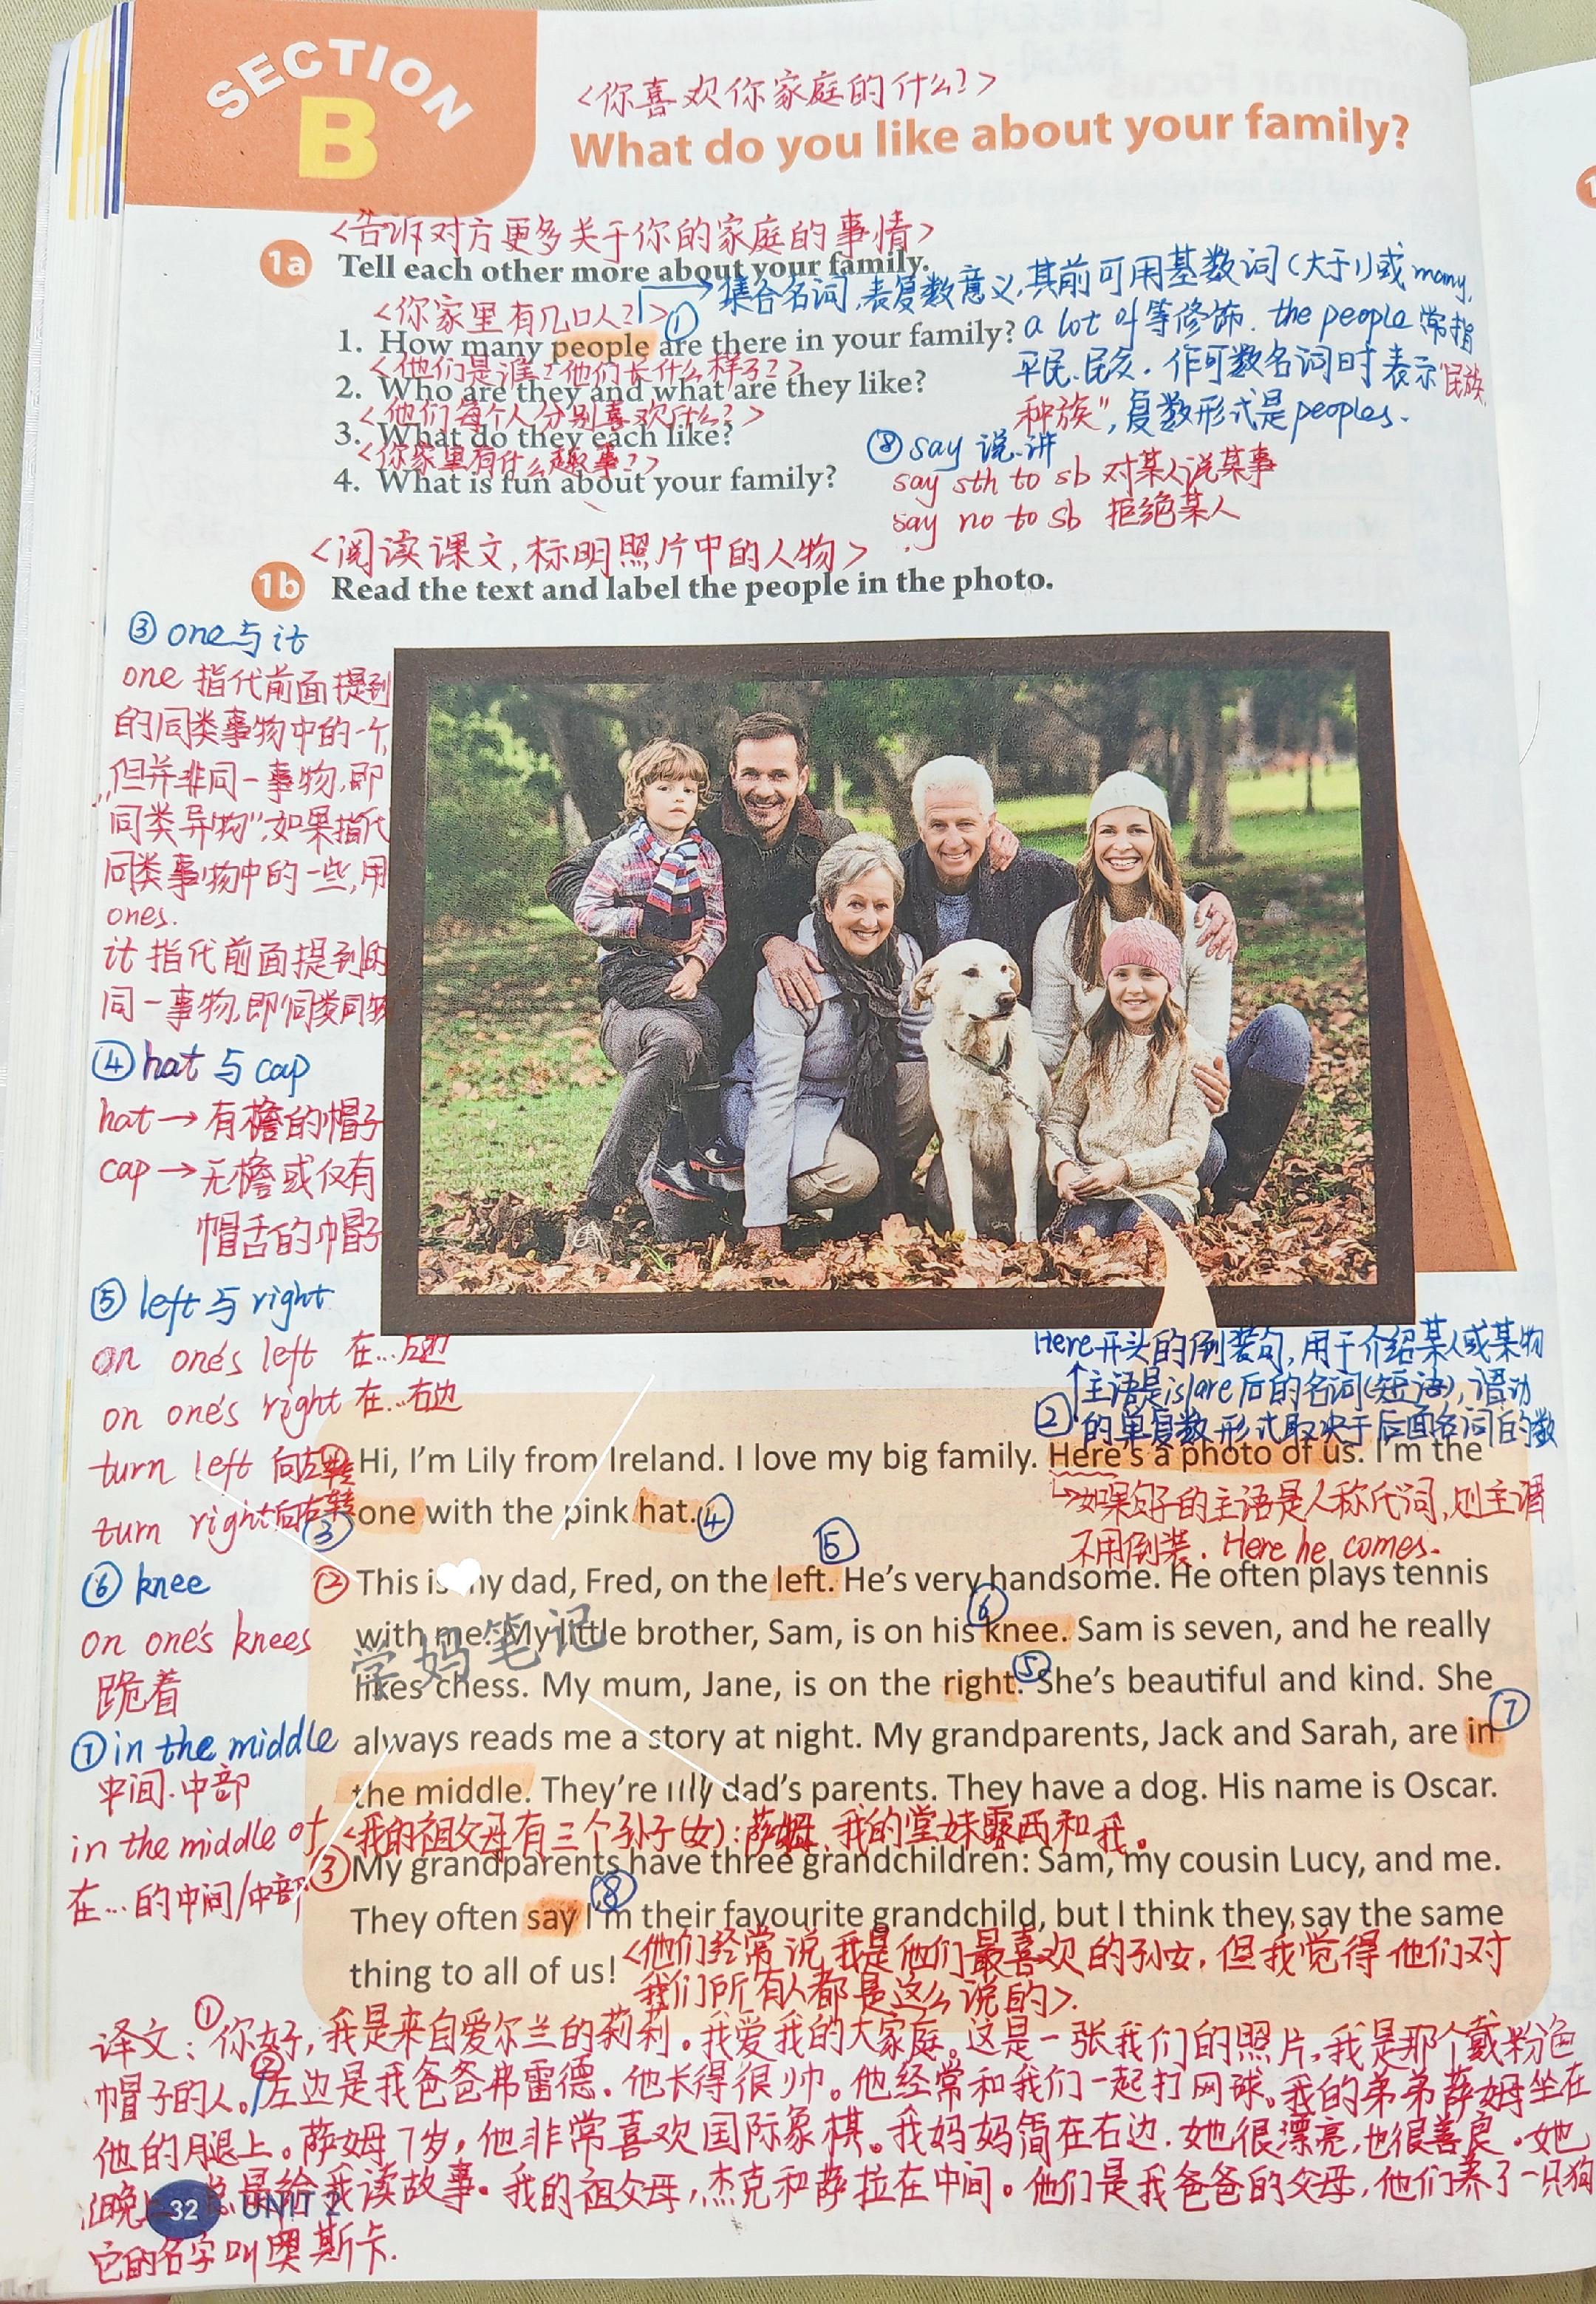 SECTION
B
<你喜欢你家庭的什么?>
What do you like about your family?
<告诉对方更多关于你的家庭的事情>
1a Tell each other more about your family.
集合名词,表复数意义,其前可用基数词(大于1)或many,
<你家里有几口人?> ①
1. How many people are there in your family?
a lot of等修饰. the people 常指
<他们是谁?他们长什么样子?>
平民.民众. 作可数名词时表示"民族.
2. Who are they and what are they like?
<他们每个人分别喜欢什么?>
种族",复数形式是peoples.
3. What do they each like?
⑧say 说.讲
<你家里有什么趣事?>
say sth to sb 对某人说某事
4. What is fun about your family?
say no to sb 拒绝某人
<阅读课文,标明照片中的人物>
1b Read the text and label the people in the photo.
③ one与it
one 指代前面提到
的同类事物中的一个,
但并非同一事物,即
同类异物";如果指代
同类事物中的一些,用
ones.
it 指代前面提到的
同一事物.即"同类同物
④hat 与 cap
hat→有檐的帽子
cap→无檐或仅有
帽舌的帽子
⑤ left 与 right
on one's left 在...左边
on one's right 在...右边
turn left 向左转
turn right向右转
⑥ knee
on one's knees
跪着
⑦in the middle
中间.中部
in the middle of
在...的中间/中部
Here开头的倒装句,用于介绍某人或某物
主语是is/are后的名词(短语),谓动
② 的单复数形式取决于后面名词的数
Hi, I'm Lily from Ireland. I love my big family. Here's a photo of us. I'm the
→如果句子的主语是人称代词,则主谓
one with the pink hat. ④
③
不用倒装. Here he comes.
⑤
② This is my dad, Fred, on the left. He's very handsome. He often plays tennis
⑥
with me. My little brother, Sam, is on his knee. Sam is seven, and he really
学妈笔记
likes chess. My mum, Jane, is on the right. ⑤ She's beautiful and kind. She
always reads me a story at night. My grandparents, Jack and Sarah, are in ⑦
the middle. They're my dad's parents. They have a dog. His name is Oscar.
<我的祖父母有三个孙子(女):萨姆、我的堂妹露西和我。
③My grandparents have three grandchildren: Sam, my cousin Lucy, and me.
⑧
They often say I'm their favourite grandchild, but I think they say the same
<他们经常说我是他们最喜欢的孙女,但我觉得他们对
thing to all of us!
我们所有人都是这么说的>.
译文:①你好,我是来自爱尔兰的莉莉。我爱我的大家庭。这是一张我们的照片,我是那个戴粉色
帽子的人。②左边是我爸爸弗雷德。他长得很帅。他经常和我们一起打网球。我的弟弟萨姆坐在
他的腿上。萨姆7岁,他非常喜欢国际象棋。我妈妈简在右边.她很漂亮,也很善良.她
晚上总是给我读故事。我的祖父母,杰克和萨拉在中间。他们是我爸爸的父母,他们养了一只狗
32 UNIT 2
它的名字叫奥斯卡.